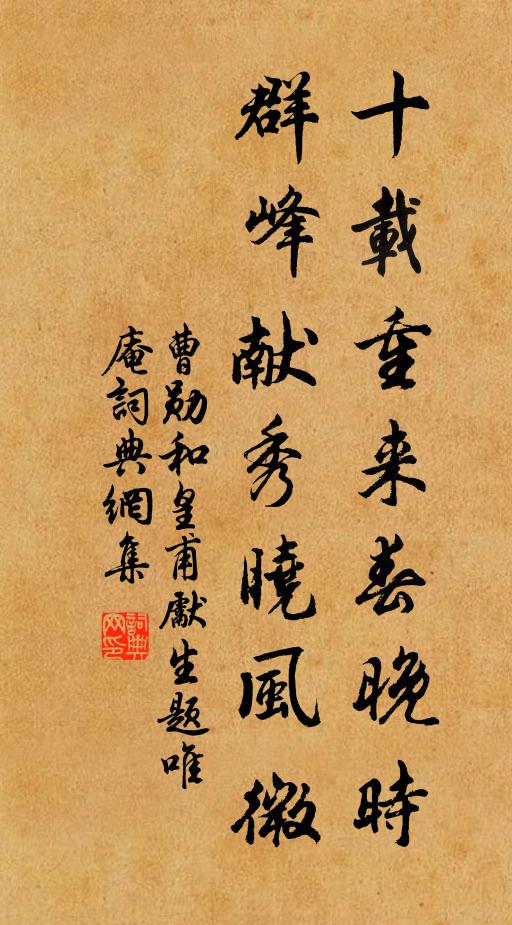 十載重来春晚時
群峰献秀曉風微
曹勋和皇甫獻生題唯
庵詞典網集
詞典网印